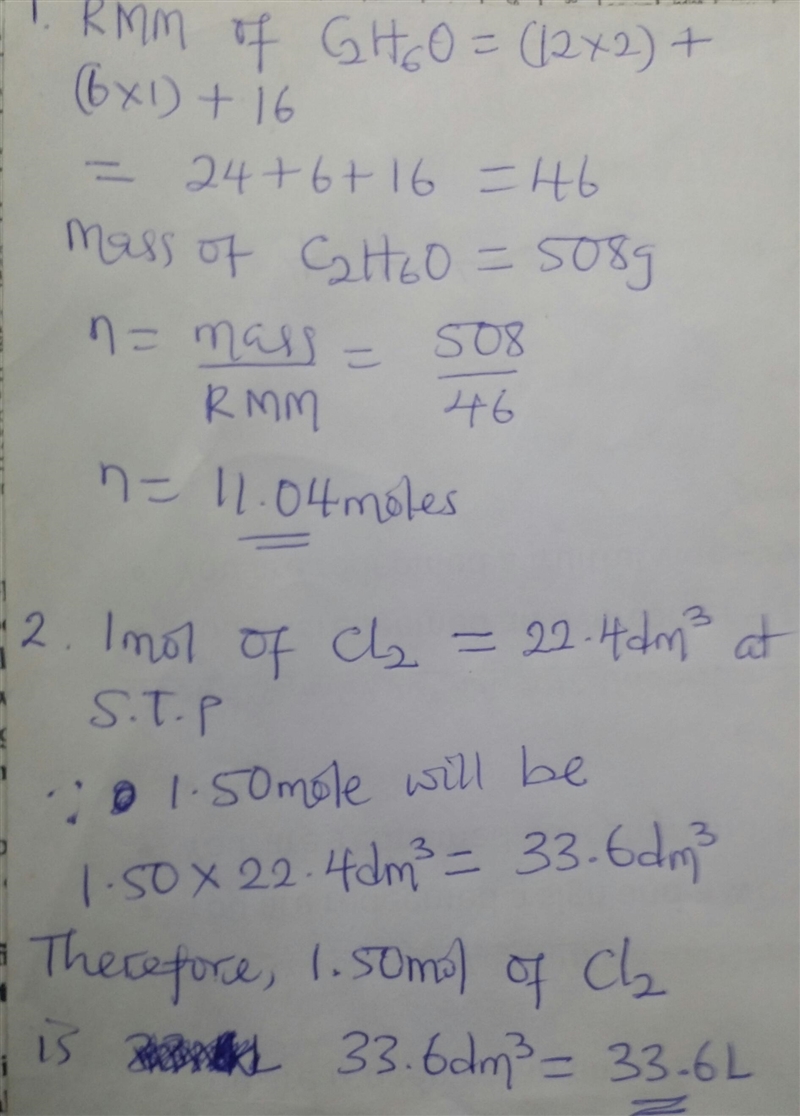 1. RMM of C₂H₆O = (12×2) +
(6×1) + 16
= 24+6+16 = 46
Mass of C₂H₆O = 508g
n = mass/RMM = 508/46
n = 11.04moles
2. 1mol of Cl₂ = 22.4dm³ at
S.T.P
∵ 1.50mole will be
1.50 × 22.4dm³ = 33.6dm³
Therefore, 1.50mol of Cl₂
is 33.6dm³ = 33.6L